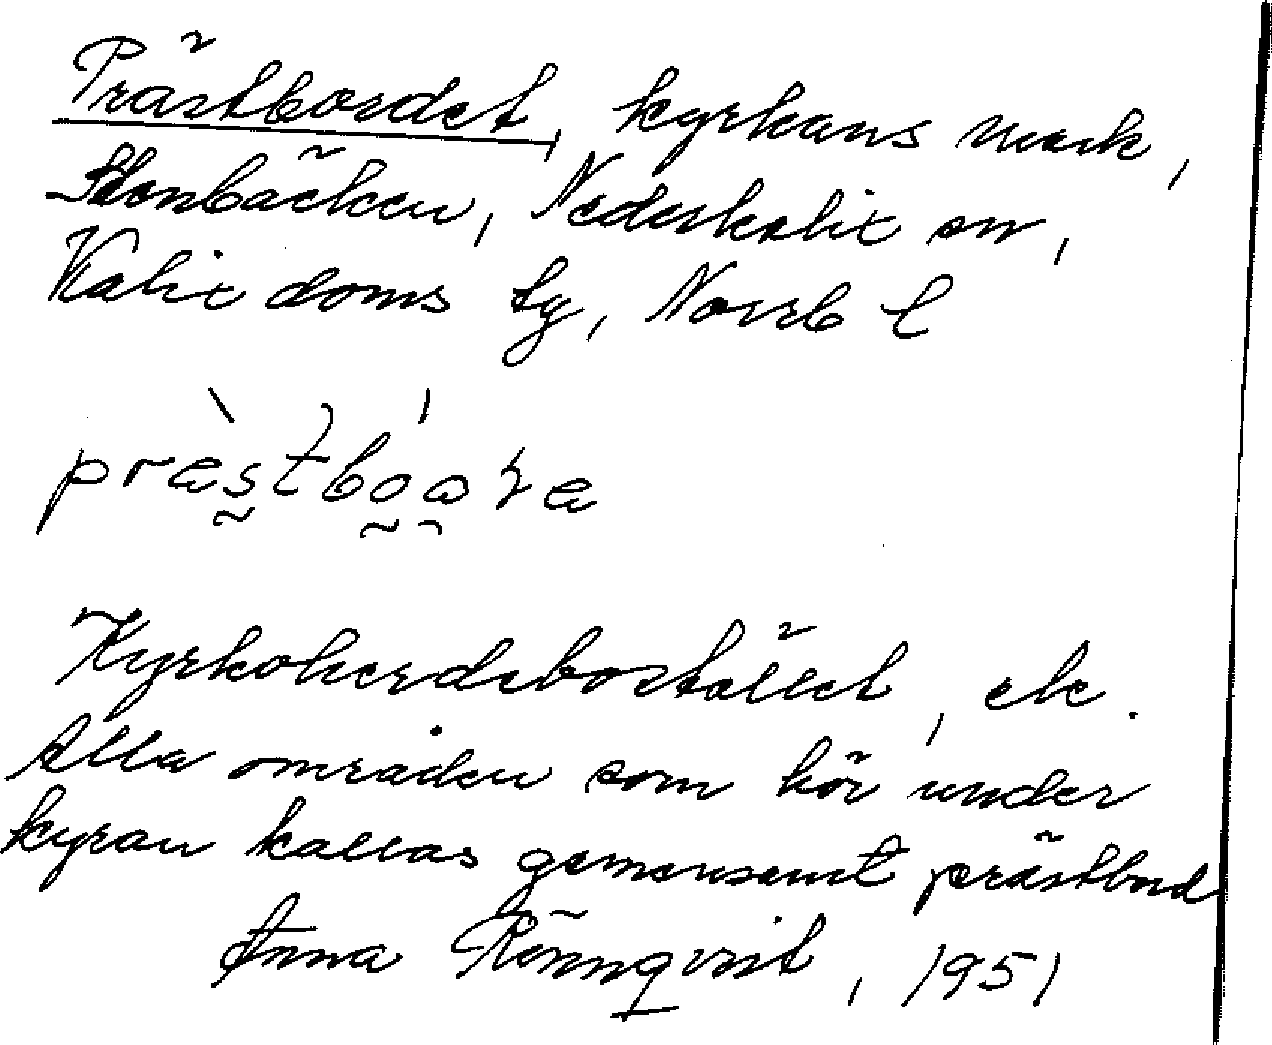 Prästbordet, kyrkans mark,
Stenbäcken, Nederkalix sn,
Kalix doms tg, Norrb l
Kyrkoherdebostället, etc.
Alla områden som hör under
kyran kallas gemensamt prästbord
Anna Rönnqvist, 1951